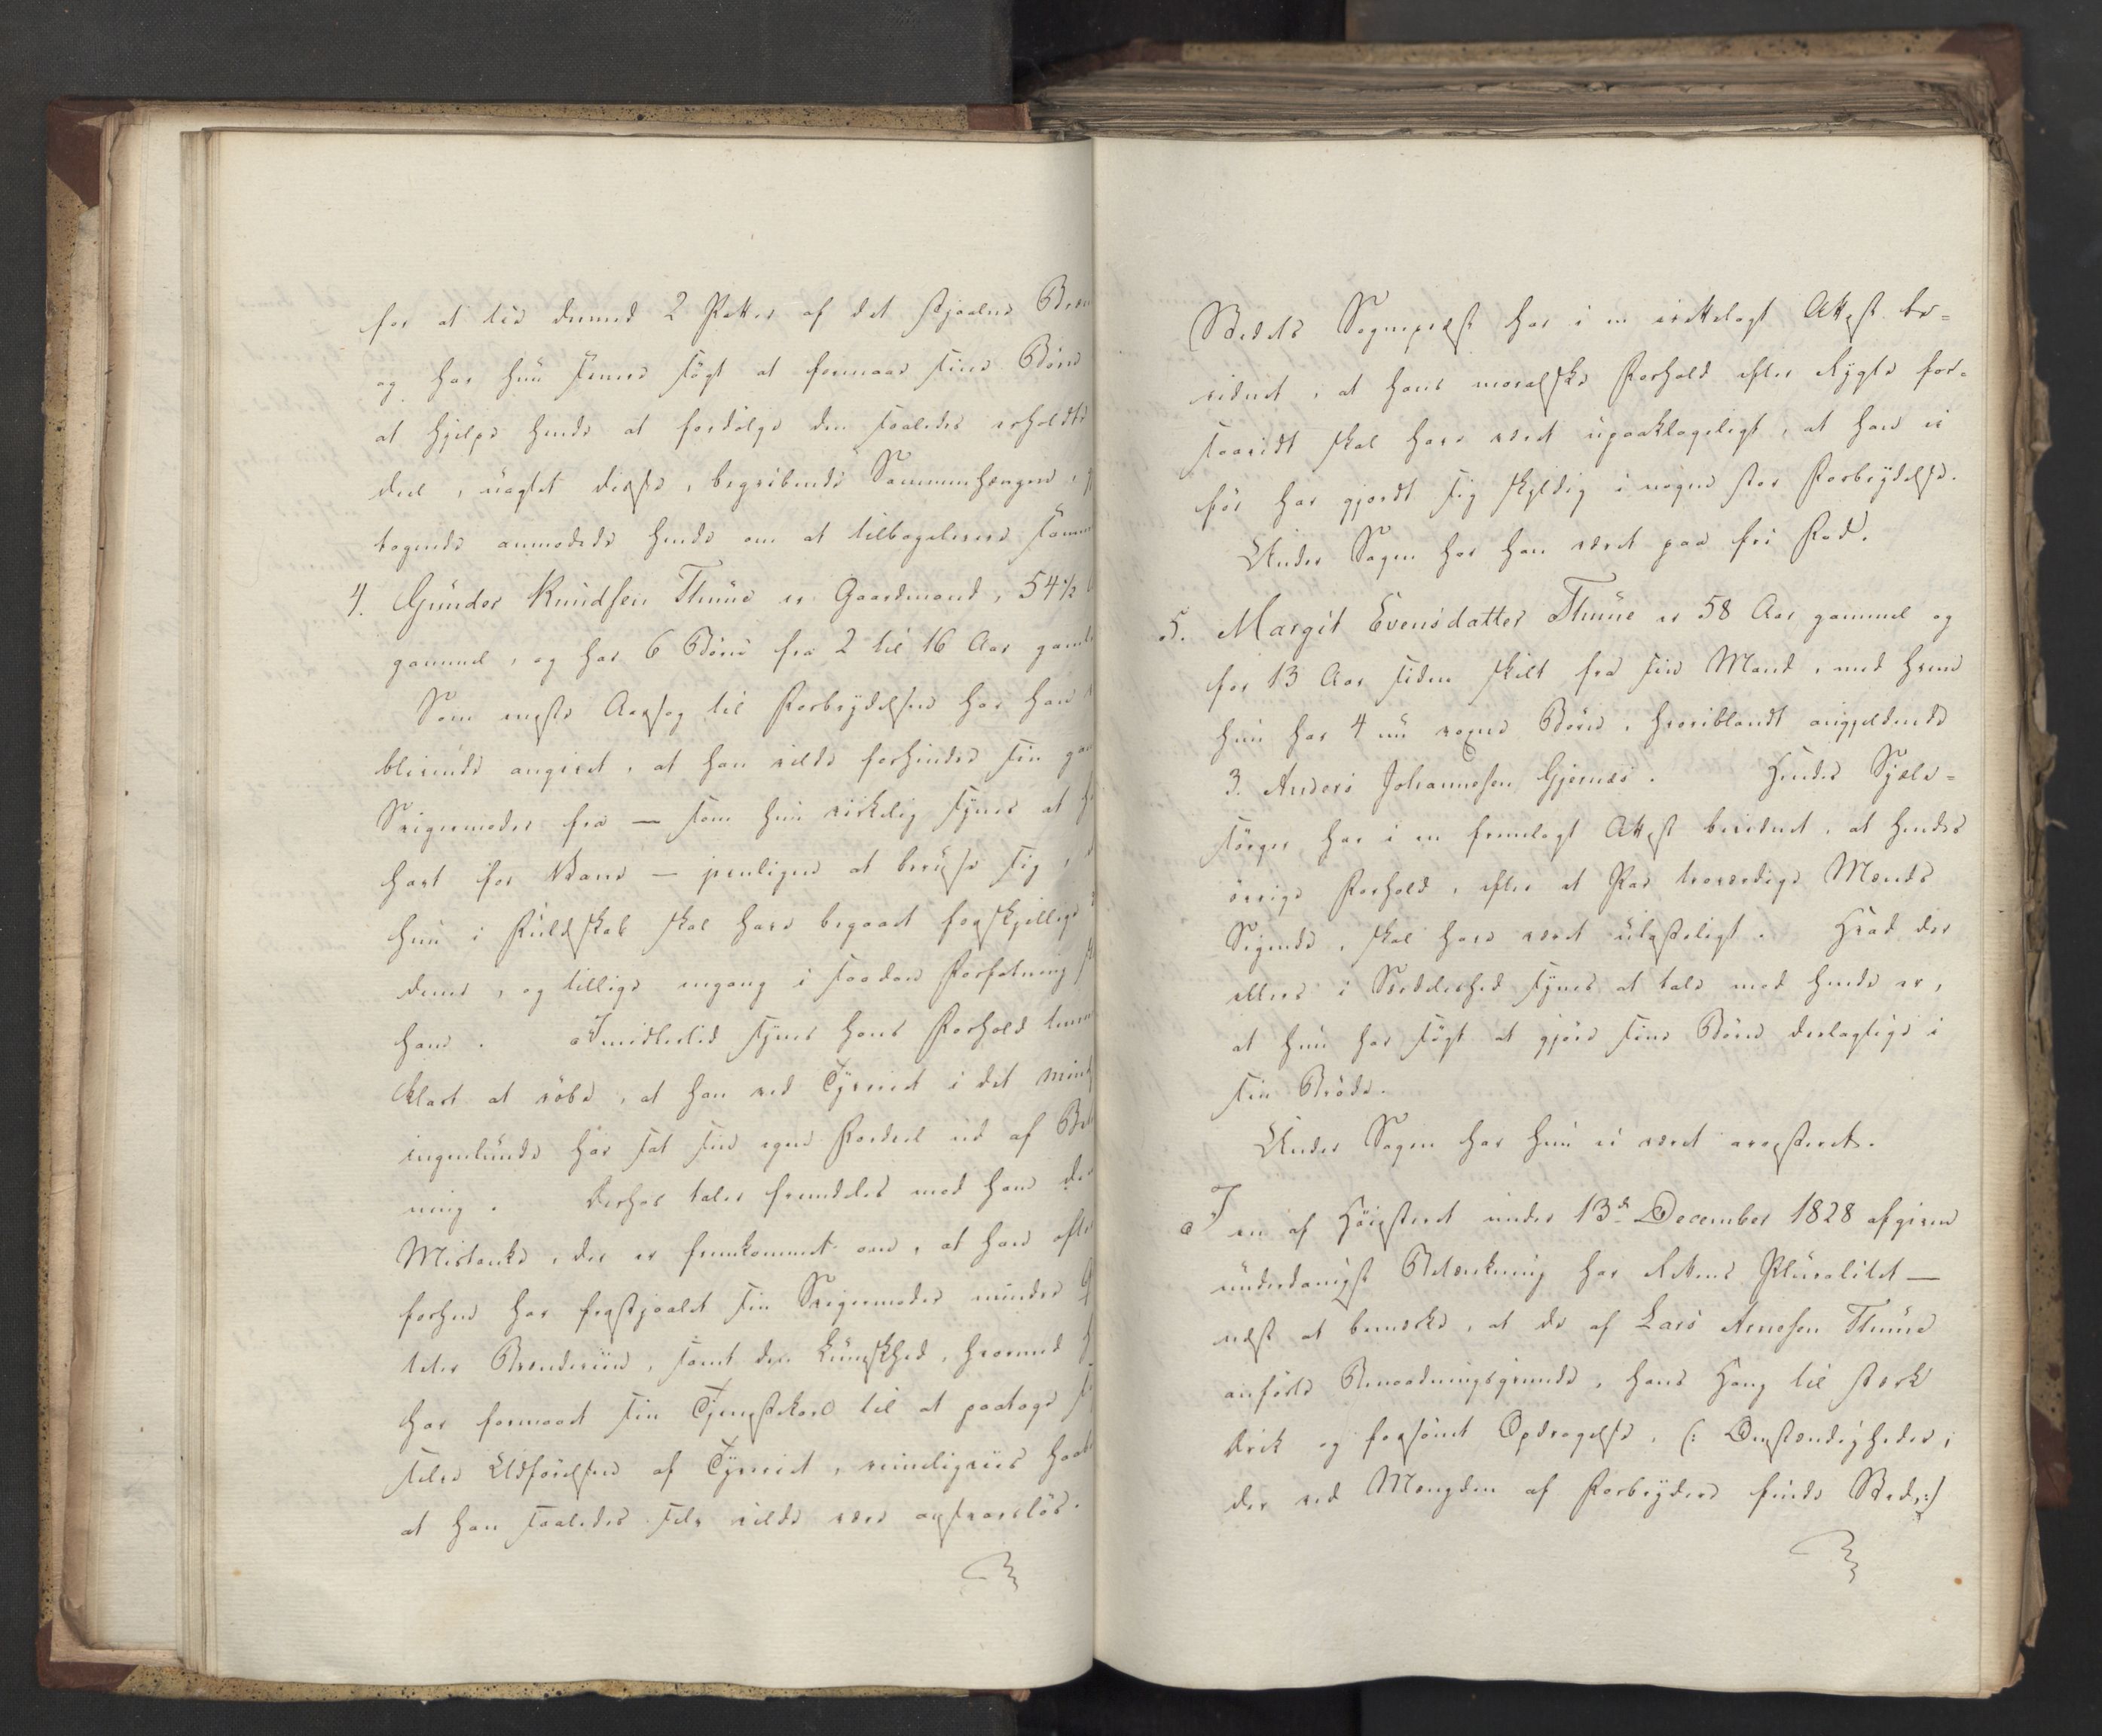 for at lade dermed 2 Potter af det stjaalne Bræn
og har hun senere søgt at formaae sine Børn
at hjelpe hende at fordølge den saaledes erholdte
deel, uagtet disse, begribende Sammenhængen,
tagende anmodede hende om at tilbagelevere samme
4. Gunder Knudsen Thune er Gaardmand, 54 1/2
gammel, og har 6 Børn fra 2 til 16 Aar gamle
Som næste Aarsag til Forbrydelsen har han
blivende angivet, at han vilde forhindre sin gamle
Svigermoder fra — som hun virkelig synes at
havt for Vane — jevnligen at beruse sig,
hun i Fuldskab skal have begaaet forskjellige
dener, og tillige engang i saadan Forfatning
ham. Imidlertid synes hans Forhold
klart at røbe, at han ved Tyveriet i det mindste
ingenlunde har sat sin egen Fordeel ud af Be
ning. Derhos taler fremdeles mod ham den
Mistanke, der er fremkommet om, at han ofte
forhen har frastjaalet sin Svigermoder mindre
teter Brændeviin, samt den Lumskhed, hvormed
har formaaet sin Tjenestekarl til at paatage
selve Udførelsen af Tyveriet, rimeligviis haabende
at han saaledes selv vilde være ansvarsløs.
Stedets Sogneprest har i en irettelagt Attest be-
vidnet, at hans moralske Forhold efter Rygte for-
saavidt skal have været upaaklageligt, at han ei
før har gjordt sig skyldig i nogen stor Forbrydelse.
Under Sagen har han været paa fri Fod.
5. Margit Evensdatter Thune er 58 Aar gammel og
for 13 Aar siden skilt fra sin Mand, med hvem
hun har 4 nu voxne Børn, hvoriblandt angjeldende
3. Anders Johannesen Gjernæs. Hendes Sjæle-
sørger har i en fremlagt Attest bevidnet, at hendes
øvrige Forhold, efter et Par troværdige Mænds
Sigende, skal have været ulasteligt. Hvad der
ellers i Særdeleshed synes at tale mod hende er,
at hun har søgt at gjøre sine Børn deelagtige i
sin Brøde.
Under Sagen har hun ei været arresteret.
I en af Høiesteret under 13de December 1828 afgiven
underdanigst Betænkning har Rettens Pluralitet —
næst at bemærke, at de af Lars Arnesen Thune
anførte Benaadningsgrunde, hans Hang til stærk
Drik og forsømt Opdragelse, (: Omstændigheder,
der ved Mængden af Forbrydere finde Sted:)